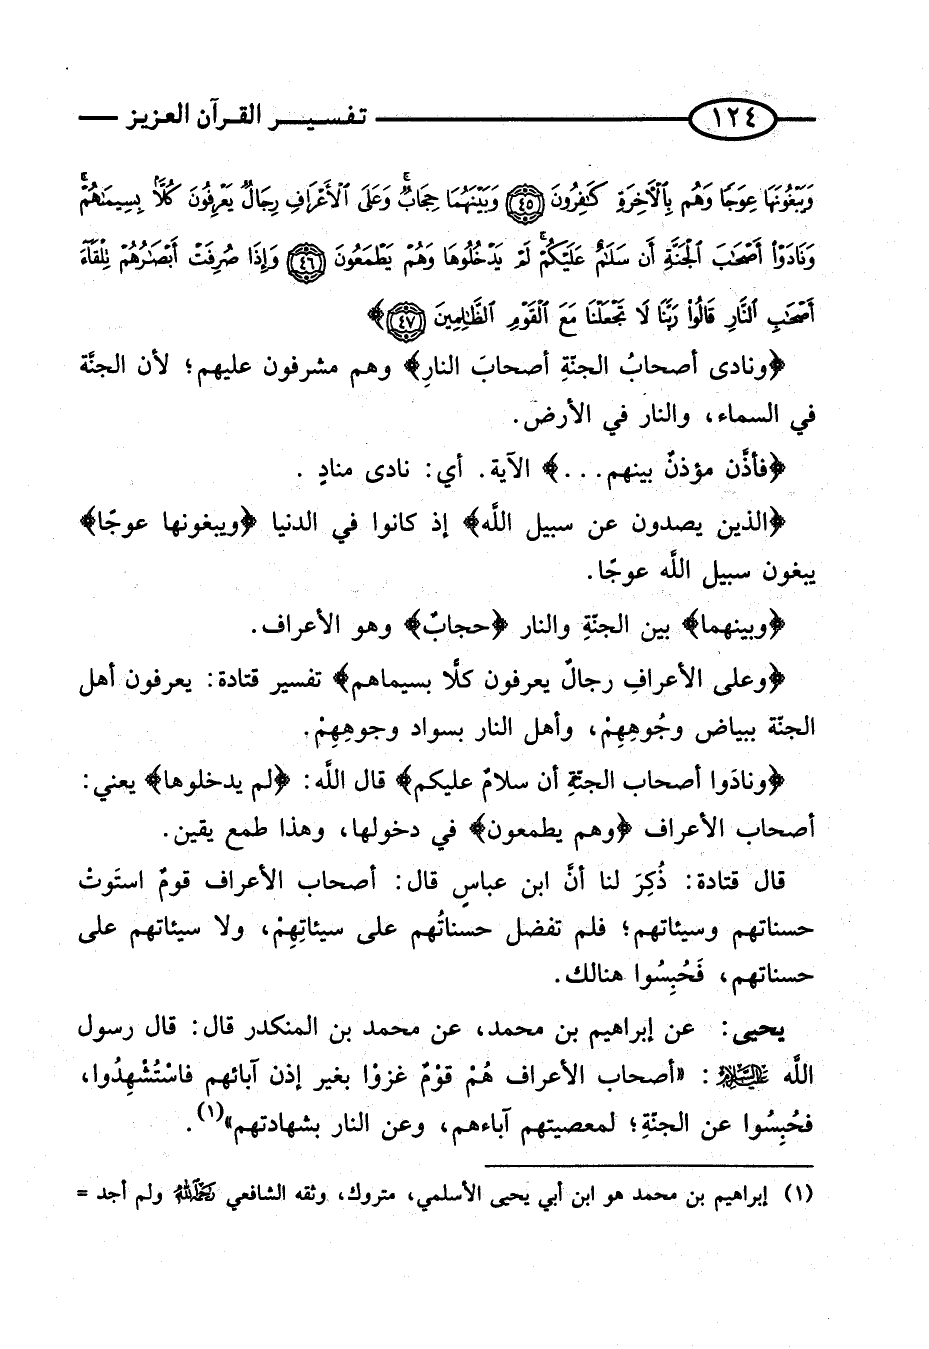 ١٢٤ تفسير القرآن العزيز
وَيَبْغُونَهَا عِوَجًا وَهُم بِالْآخِرَةِ كَافِرُونَ ٤٥ وَبَيْنَهُمَا حِجَابٌ وَعَلَى الْأَعْرَافِ رِجَالٌ يَعْرِفُونَ كُلًّا بِسِيمَاهُمْ
وَنَادَوْا أَصْحَابَ الْجَنَّةِ أَن سَلَامٌ عَلَيْكُمْ لَمْ يَدْخُلُوهَا وَهُمْ يَطْمَعُونَ ٤٦ وَإِذَا صُرِفَتْ أَبْصَارُهُمْ تِلْقَاءَ
أَصْحَابِ النَّارِ قَالُوا رَبَّنَا لَا تَجْعَلْنَا مَعَ الْقَوْمِ الظَّالِمِينَ ٤٧﴾
﴿ونادى أصحابُ الجنّةِ أصحابَ النارِ﴾ وهم مشرفون عليهم؛ لأن الجنَّة
في السماء، والنار في الأرض.
﴿فأذَّن مؤذنٌ بينهم...﴾ الآية. أي: نادى منادٍ .
﴿الذين يصدون عن سبيل اللَّه﴾ إذ كانوا في الدنيا ﴿ويبغونها عوجًا﴾
يبغون سبيل اللَّه عوجًا.
﴿وبينهما﴾ بين الجنّةِ والنار ﴿حجابٌ﴾ وهو الأعراف.
﴿وعلى الأعرافِ رجالٌ يعرفون كلًّا بسيماهم﴾ تفسير قتادة: يعرفون أهل
الجنّة ببياض وجُوهِهِمْ، وأهل النار بسواد وجوهِهِمْ.
﴿ونادَوا أصحاب الجنّةِ أن سلامٌ عليكم﴾ قال اللَّه: ﴿لم يدخلوها﴾ يعني:
أصحاب الأعراف ﴿وهم يطمعون﴾ في دخولها، وهذا طمع يقين.
قال قتادة: ذُكِرَ لنا أنَّ ابن عباسٍ قال: أصحاب الأعراف قومٌ استَوتْ
حسناتهم وسيئاتهم؛ فلم تفضل حسناتُهم على سيئاتِهِمْ، ولا سيئاتهم على
حسناتهم، فَحُبِسُوا هنالك.
يحيى: عن إبراهيم بن محمد، عن محمد بن المنكدر قال: قال رسول
اللَّه ﷺ: «أصحاب الأعراف هُمْ قوْمٌ غزوْا بغير إذن آبائهم فاسْتُشْهِدُوا،
فحُبِسُوا عن الجنّةِ؛ لمعصيتهم آباءهم، وعن النار بشهادتهم»(١).
(١) إبراهيم بن محمد هو ابن أبي يحيى الأسلمي، متروك، وثقه الشافعي رحمه الله ولم أجد =